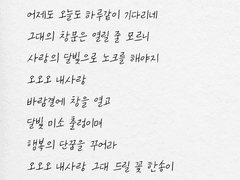 어제도 오늘도 하루같이 기다리네
그대의 창문은 열릴 줄 모르니
사랑의 달빛으로 노크를 해야지
오오오 내사랑
바람결에 창을 열고
달빛 미소 출렁이며
행복의 단꿈을 꾸어라
오오오 내사랑 그대 드릴 꽃 한송이